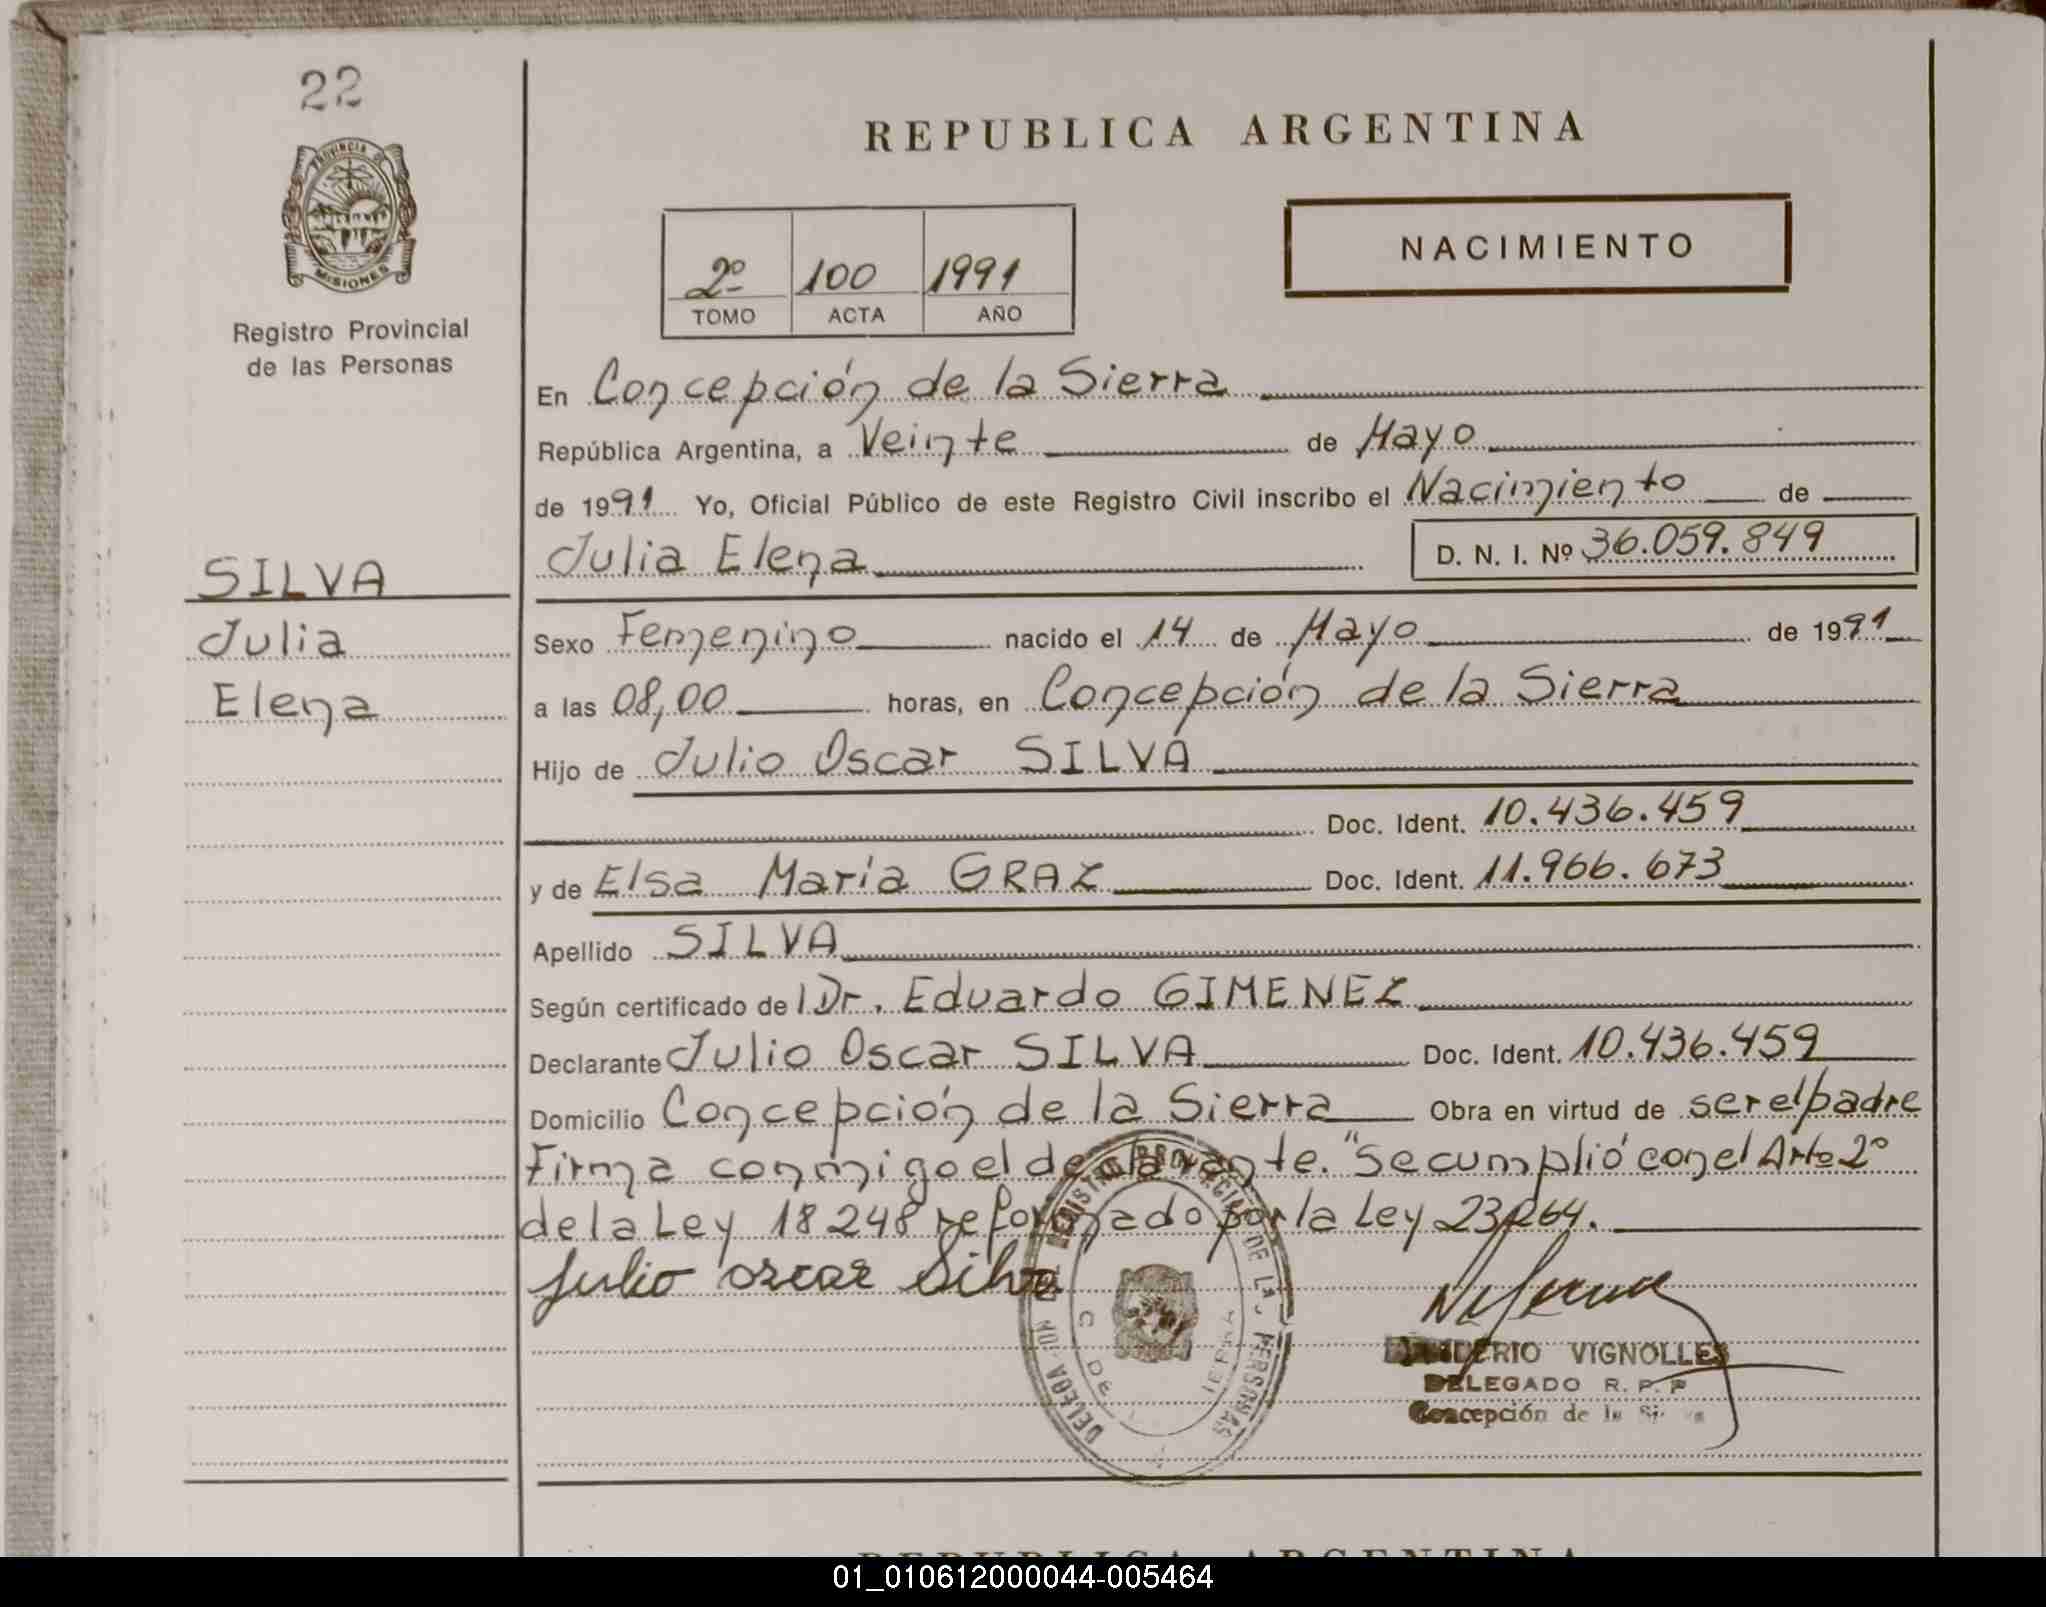 22
PROVINCIA DE
MISIONES
Registro Provincial
de las Personas
SILVA
Julia
Elena
REPUBLICA ARGENTINA
2º 100 1991
TOMO ACTA AÑO
NACIMIENTO
En Concepción de la Sierra
República Argentina, a Veinte de Mayo
de 1991 Yo, Oficial Público de este Registro Civil inscribo el Nacimiento de
Julia Elena D. N. I. Nº 36.059.849
Sexo Femenino nacido el 14 de Mayo de 1991
a las 08,00 horas, en Concepción de la Sierra
Hijo de Julio Oscar SILVA
Doc. Ident. 10.436.459
y de Elsa María GRAZ Doc. Ident. 11.966.673
Apellido SILVA
Según certificado del Dr. Eduardo GIMENEZ
Declarante Julio Oscar SILVA Doc. Ident. 10.436.459
Domicilio Concepción de la Sierra Obra en virtud de ser el padre
Firma conmigo el declarante. "Se cumplió con el Arto 2º
de la Ley 18248 reformado por la Ley 23264.
Julio oscar Silva
VIGNOLLES
DELEGADO R. P. P
Concepción de la Sierra
REGISTRO PROVINCIAL DE LAS PERSONAS
REPUBLICA ARGENTINA
01_010612000044-005464